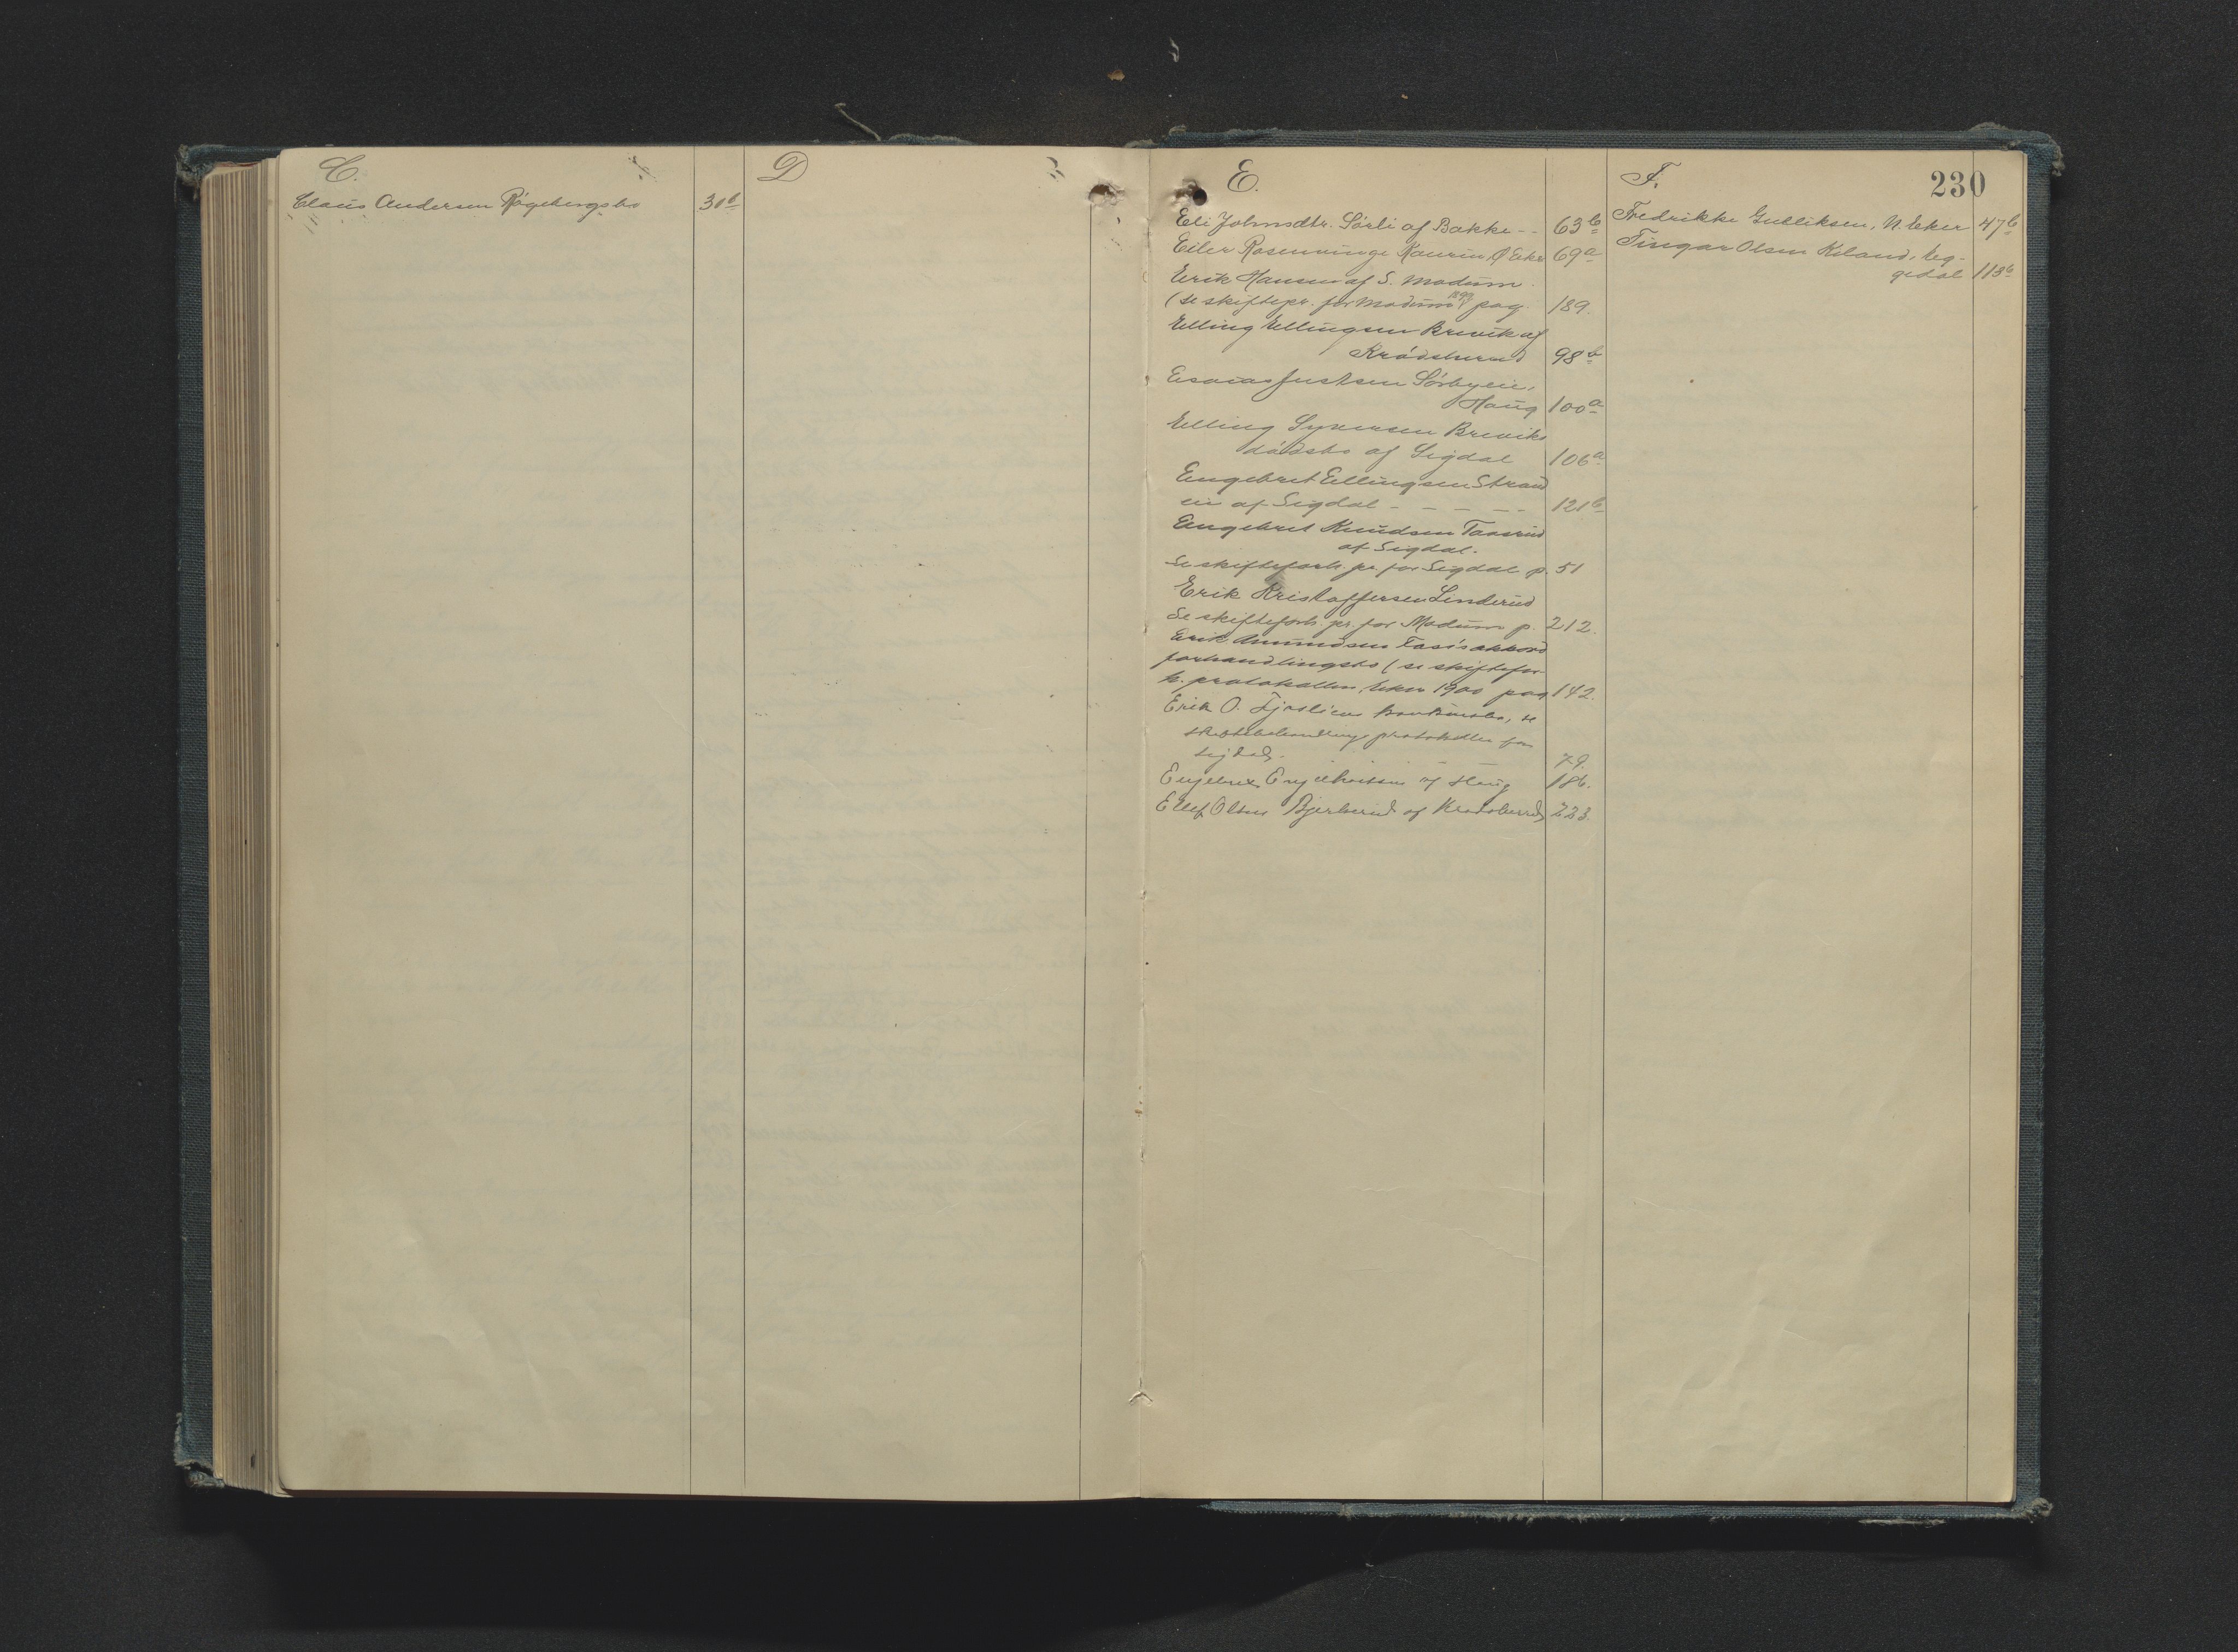 C.
Claus Andersen Røgebergsbo 30b
D
E.
Eli Johnsdtr. Sørli af Bakke -- 63b
Eiler Rosenvinge Kaurin, Ø Eker 69a
Erik Hansen af S. Modum
(se skiftepr. for Modum 1899 pag. 189.
Elling Ellingsen Brevik af
Krødsherred 98b
Esaias Justsen Sørbyeie,
Haug 100a
Elling Syversen Breviks
dødsbo af Sigdal 106a
Engebret Ellingsen Strand
eie af Sigdal - - - - - 121b
Engebret Knudsen Taasrud
af Sigdal.
Se skifteforh. pr. for Sigdal p. 51
Erik Kristoffersen Linderud
Se skifteforh. pr. for Modum p. 212.
Erik Amundsen Fos's akkord
forhandlingsbo (se skiftefor-
h. protokollen, Eker 1900 pag 142.
Erik O. se
skiftebehandlings protokollen for
Sigdal. 79.
Engebret Engebretsen af Haug 186.
Ellef Olsen Bjerkerud af Krødsherred 223.
F.
230
Fredrikke Gulliksen, N. Eker 47b
Fingar Olsen Kiland, Eg-
gedal 113b